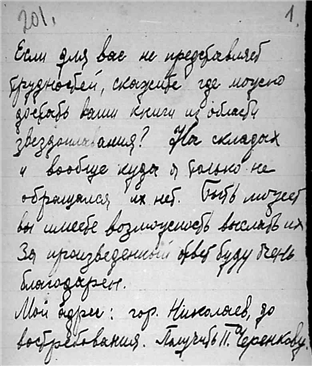 201.
1.
Если для вас не представляет
трудностей, скажите где можно
достать ваши книги из области
звездоплавания? На складах
и вообще куда я только не
обращался их нет. Быть может
вы имеете возможность выслать их
За произведенный ответ буду очень
благодарен.
Мой адрес: гор. Николаев, до
востребования. Получить П. Черенкову.